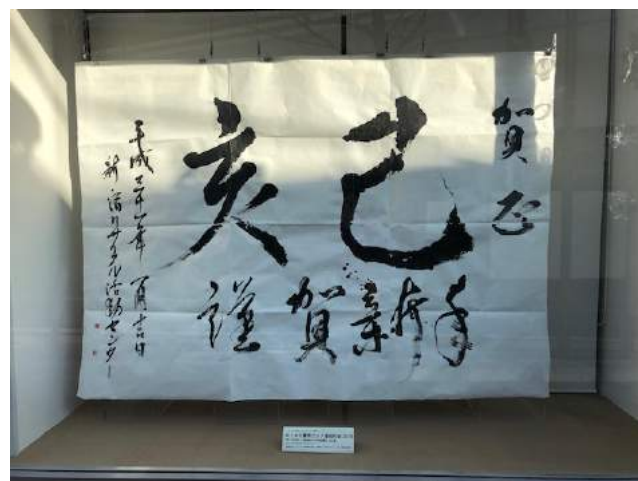 賀正
己亥
謹賀新年
平成三十一年 一月吉日
新宿リサイクル活動センター